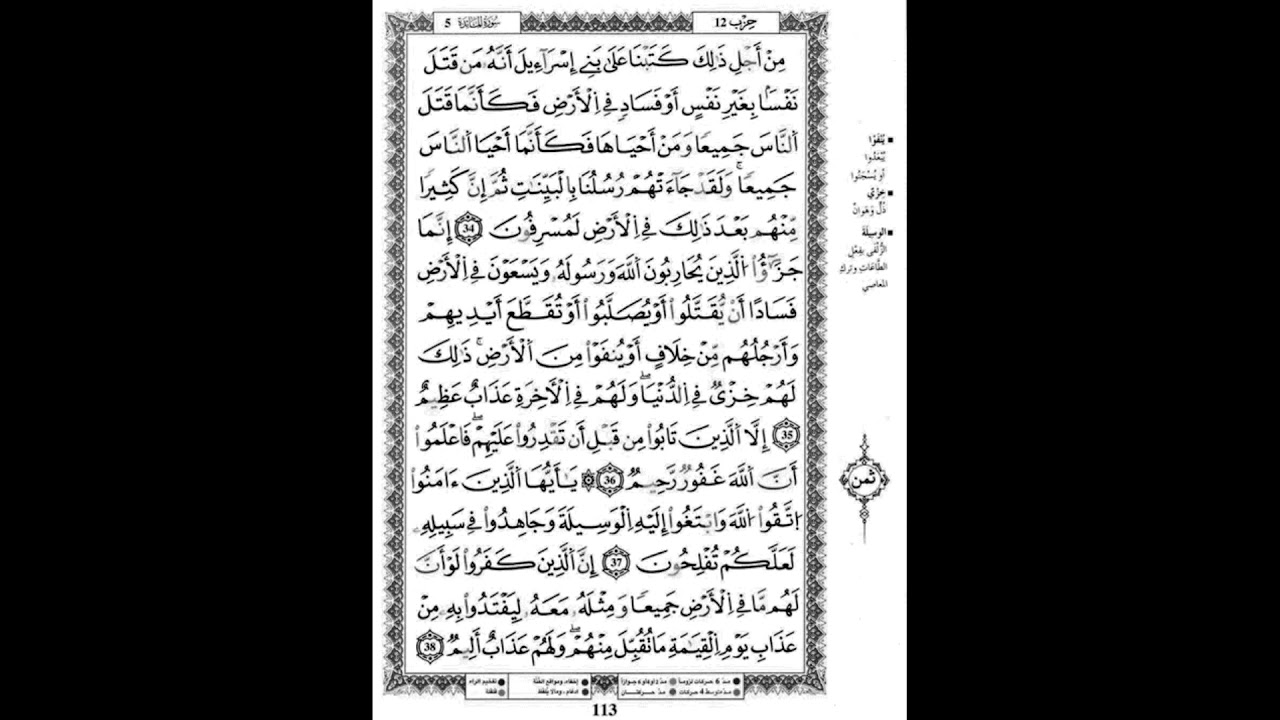 حِزْب 12
سُورَةُ المَائِدَة 5
مِنْ أَجْلِ ذَٰلِكَ كَتَبْنَا عَلَىٰ بَنِے إِسْرَآءِيلَ أَنَّهُۥ مَن قَتَلَ
نَفْسًۢا بِغَيْرِ نَفْسٍ أَوْ فَسَادٍۢ فِے اِ۬لْأَرْضِ فَكَأَنَّمَا قَتَلَ
اَ۬لنَّاسَ جَمِيعًۭا وَمَنْ أَحْيَاهَا فَكَأَنَّمَآ أَحْيَا اَ۬لنَّاسَ
جَمِيعًۭاۖ وَلَقَدْ جَآءَتْهُمْ رُسُلُنَا بِالْبَيِّنَٰتِ ثُمَّ إِنَّ كَثِيرًۭا
مِّنْهُم بَعْدَ ذَٰلِكَ فِے اِ۬لْأَرْضِ لَمُسْرِفُونَ 34 إِنَّمَا
جَزَٰٓؤُاْ اُ۬لَّذِينَ يُحَارِبُونَ اَ۬للَّهَ وَرَسُولَهُۥ وَيَسْعَوْنَ فِے اِ۬لْأَرْضِ
فَسَادًا أَنْ يُّقَتَّلُوٓاْ أَوْ يُصَلَّبُوٓاْ أَوْ تُقَطَّعَ أَيْدِيهِمْ
وَأَرْجُلُهُم مِّنْ خِلَٰفٍ أَوْ يُنفَوْاْ مِنَ اَ۬لْأَرْضِۚ ذَٰلِكَ
لَهُمْ خِزْىٌۭ فِے اِ۬لدُّنْيَاۖ وَلَهُمْ فِے اِ۬لْأَخِرَةِ عَذَابٌ عَظِيمٌ
35 إِلَّا اَ۬لَّذِينَ تَابُواْ مِن قَبْلِ أَن تَقْدِرُواْ عَلَيْهِمْۖ فَاعْلَمُوٓاْ
أَنَّ اَ۬للَّهَ غَفُورٌۭ رَّحِيمٌۭ 36 ۞ يَٰٓأَيُّهَا اَ۬لَّذِينَ ءَامَنُواْ
اُ۪تَّقُواْ اُ۬للَّهَ وَابْتَغُوٓاْ إِلَيْهِ اِ۬لْوَسِيلَةَ وَجَٰهِدُواْ فِے سَبِيلِهِۦ
لَعَلَّكُمْ تُفْلِحُونَ 37 إِنَّ اَ۬لَّذِينَ كَفَرُواْ لَوْ أَنَّ
لَهُم مَّا فِے اِ۬لْأَرْضِ جَمِيعًۭا وَمِثْلَهُۥ مَعَهُۥ لِيَفْتَدُواْ بِهِۦ مِنْ
عَذَابِ يَوْمِ اِ۬لْقِيَٰمَةِ مَا تُقُبِّلَ مِنْهُمْۖ وَلَهُمْ عَذَابٌ أَلِيمٌۭ 38
■ يُنْفَوْا
يُبْعَدُوا
أو يُسْجَنُوا
■ خِزْيٌ
ذُلٌّ وَهَوَانٌ
■ الوَسِيلَةَ
الزُّلْفَى بِفِعْلِ
الطَّاعَاتِ وتركِ
المعاصي
ثمن
مدّ 6 حركات لزوماً
مدّ 2 أو 4 أو 6 جوازاً
إخفاء، ومواقع الغُنَّة
تفخيم الراء
مدّ حركتان
ادغام، ومالا يُلفَظ
قلقلة
113